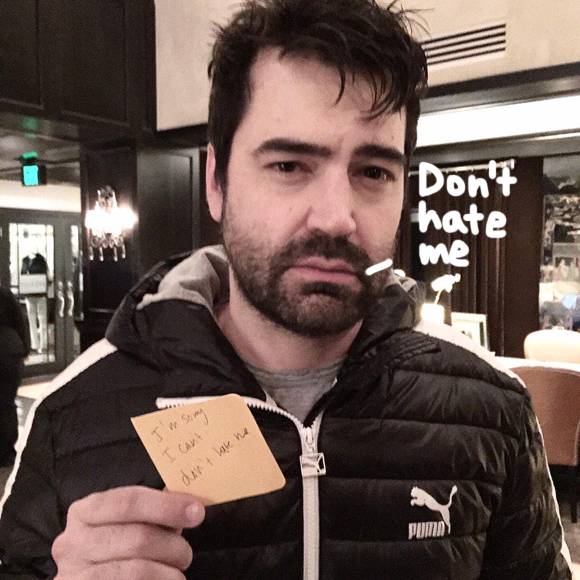 Don't
hate
me
I'm sorry
I can't
don't hate me
PUMA